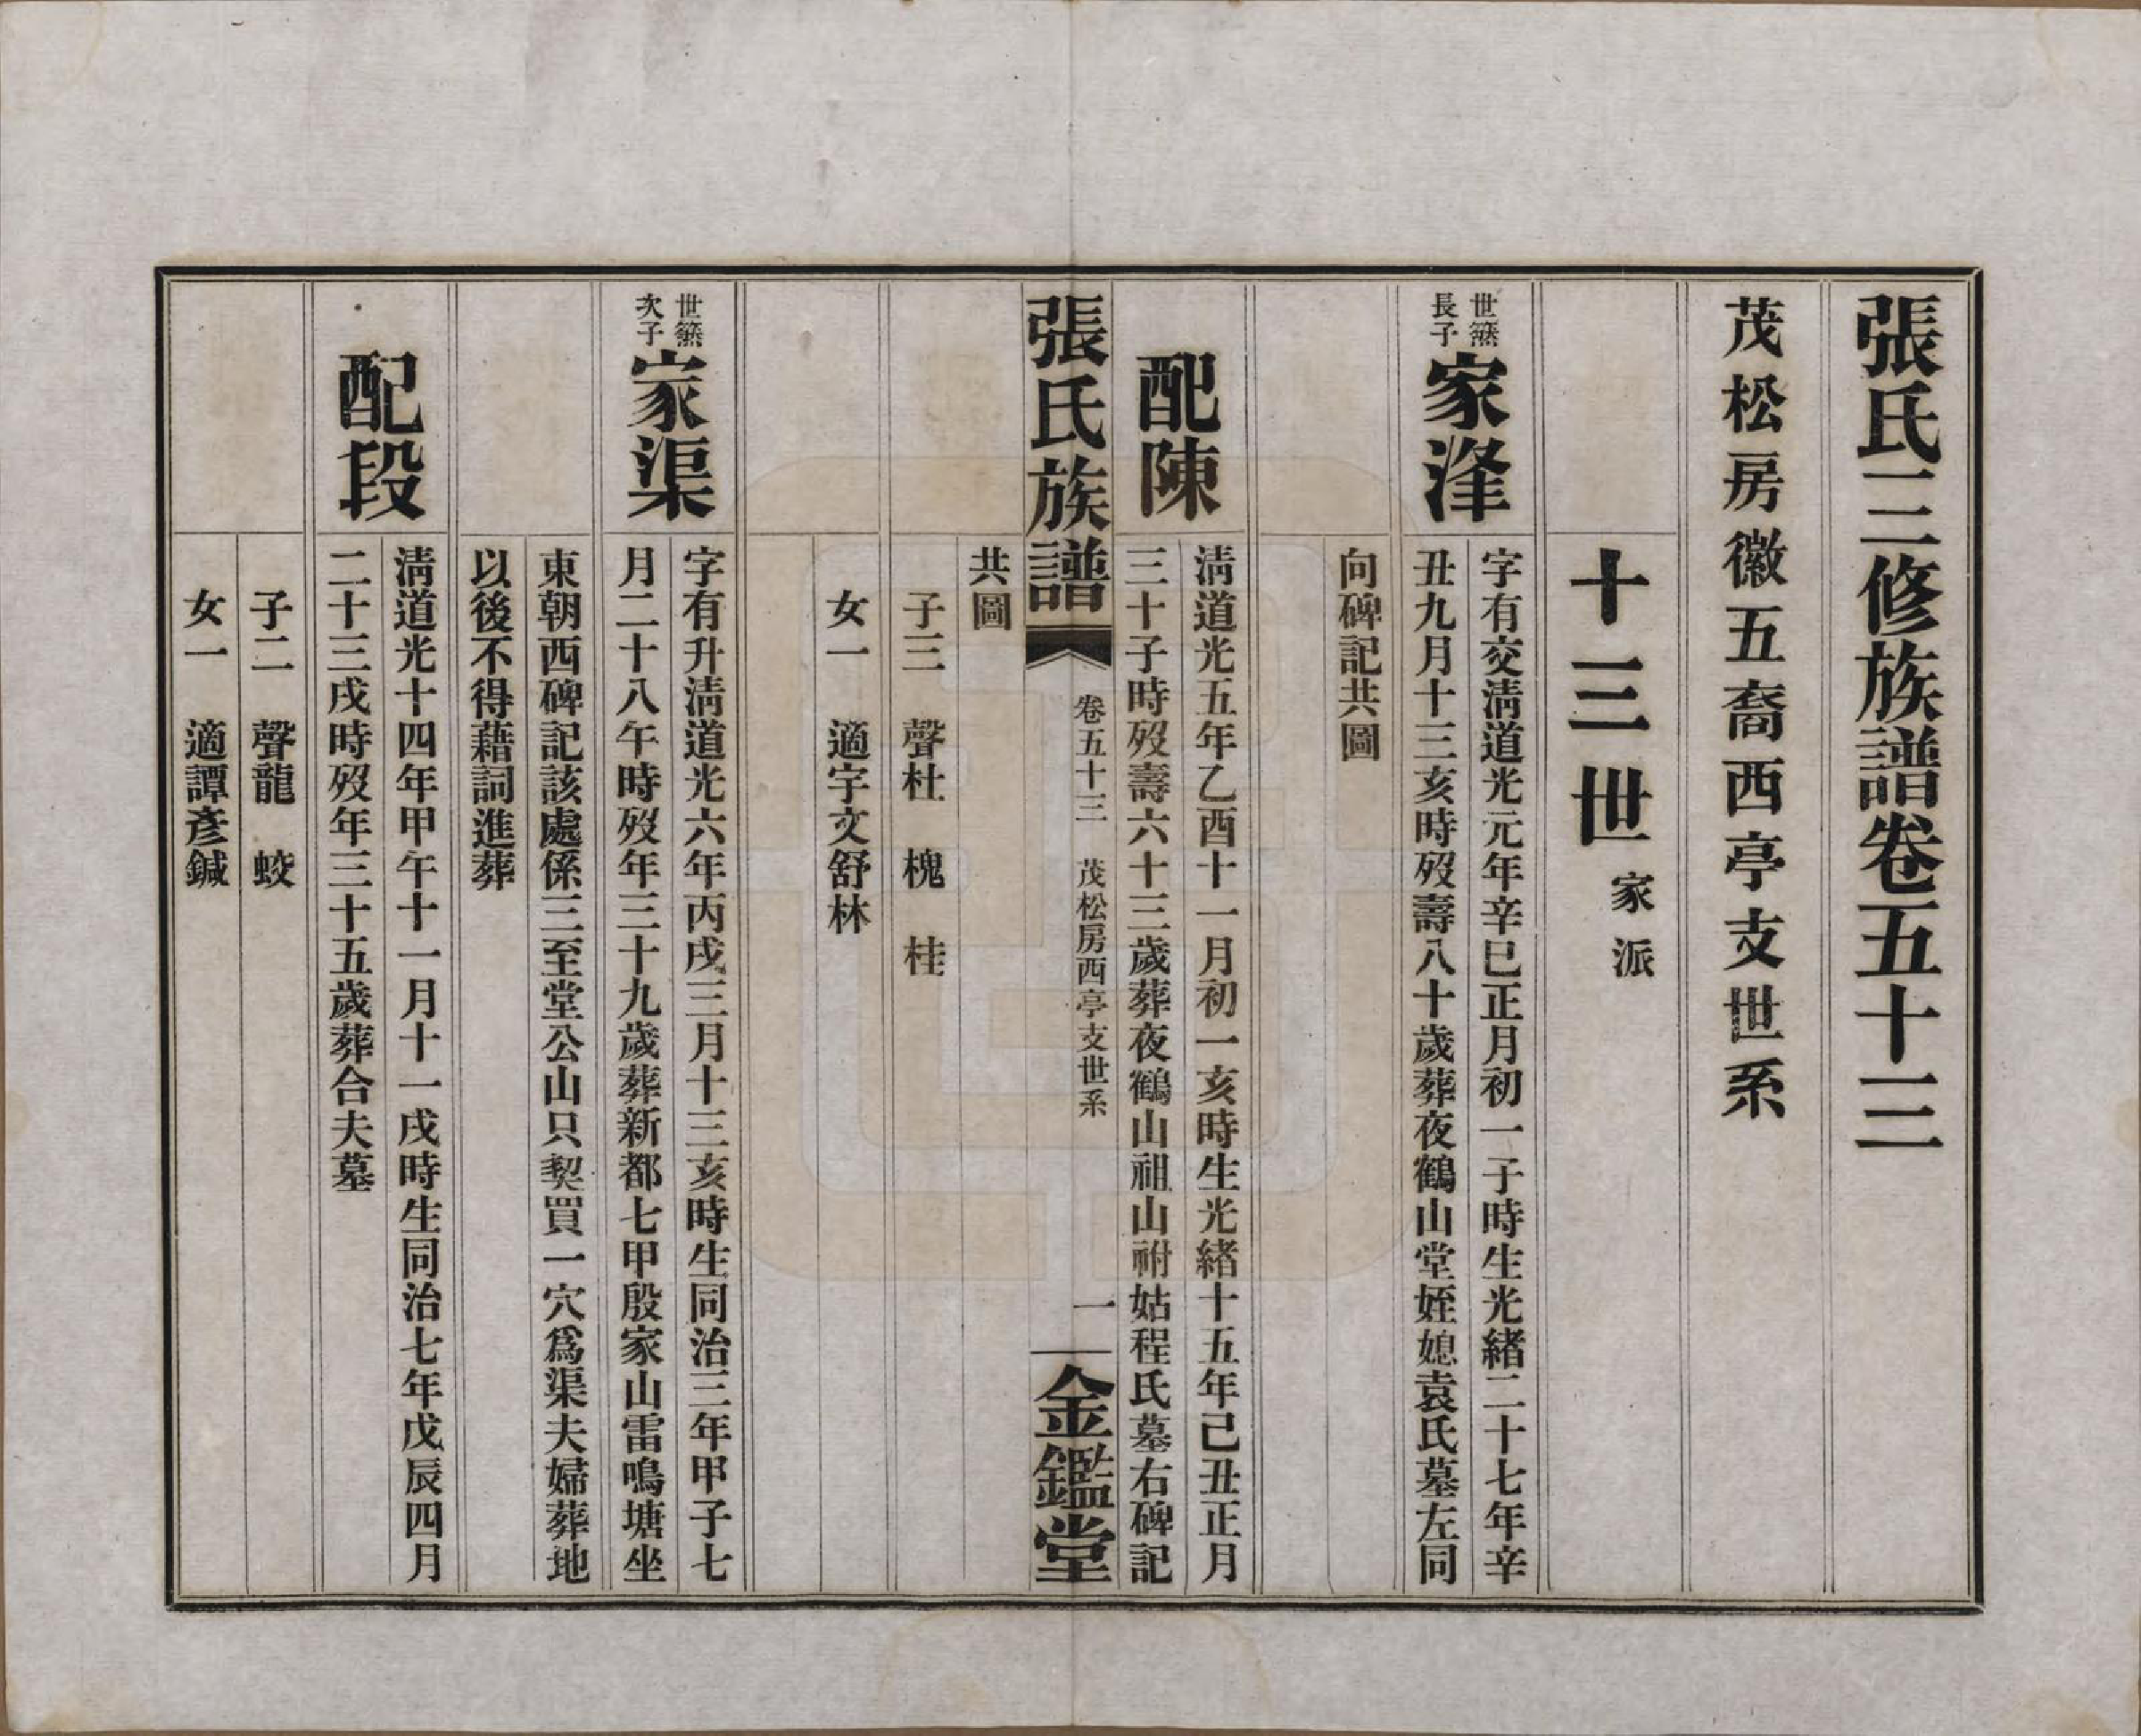 張氏三修族譜卷五十三
茂松房徽五裔西亭支世系
十三世家派
世㷱長子
家浲
字有交淸道光元年辛巳正月初一子時生光緖二十七年辛
丑九月十三亥時歿壽八十歲葬夜鶴山堂姪媳袁氏墓左同
向碑記共圖
配陳
淸道光五年乙酉十一月初一亥時生光緖十五年己丑正月
三十子時歿壽六十三歲葬夜鶴山祖山祔姑程氏墓右碑記
張氏族譜
卷五十三　茂松房西亭支世系
一
金鑑堂
共圖
子三　聲杜　槐　桂
女一　適宇文舒林
次子
家渠
字有升淸道光六年丙戌三月十三亥時生同治三年甲子七
月二十八午時歿年三十九歲葬新都七甲殷家山雷鳴塘坐
東朝西碑記該處係三至堂公山只契買一穴爲渠夫婦葬地
以後不得藉詞進葬
配段
淸道光十四年甲午十一月十一戌時生同治七年戊辰四月
二十三戌時歿年三十五歲葬合夫墓
子二　聲龍　蛟
女一　適譚彥鍼